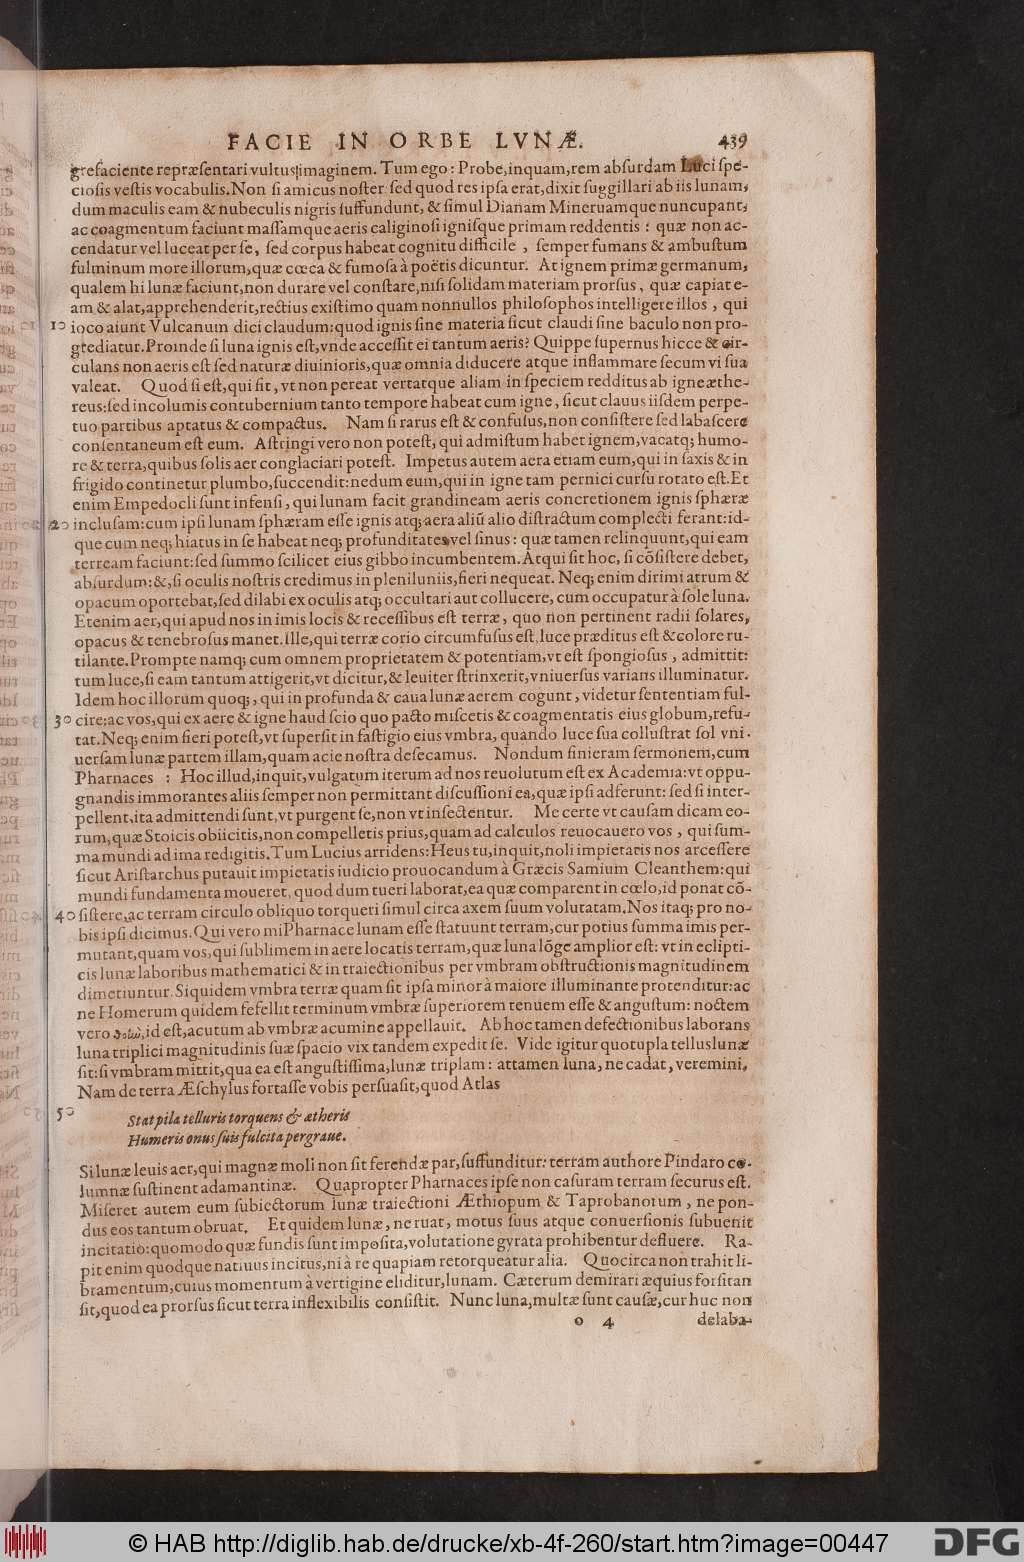 FACIE IN ORBE LVNÆ. 439
grefaciente repræſentari vultus imaginem. Tum ego: Probe, inquam, rem abſurdam Luci ſpe-
cioſis veſtis vocabulis. Non ſi amicus noſter ſed quod res ipſa erat, dixit ſuggillari ab iis lunam,
dum maculis eam & nubeculis nigris ſuffundunt, & ſimul Dianam Mineruamque nuncupant,
ac coagmentum faciunt maſſamque aeris caliginoſi igniſque primam reddentis: quæ non ac-
cendatur vel luceat per ſe, ſed corpus habeat cognitu difficile, ſemper fumans & ambuſtum
fulminum more illorum, quæ cœca & fumoſa à poëtis dicuntur. At ignem primæ germanum,
qualem hi lunæ faciunt, non durare vel conſtare, niſi ſolidam materiam prorſus, quæ capiat e-
am & alat, apprehenderit, rectius exiſtimo quam nonnullos philoſophos intelligere illos, qui
10 ioco aiunt Vulcanum dici claudum: quod ignis ſine materia ſicut claudi ſine baculo non pro-
grediatur. Proinde ſi luna ignis eſt, vnde acceſſit ei tantum aeris? Quippe ſupernus hicce & cir-
culans non aeris eſt ſed naturæ diuinioris, quæ omnia diducere atque inflammare ſecum vi ſua
valeat. Quod ſi eſt, qui fit, vt non pereat vertatque aliam in ſpeciem redditus ab igne æthe-
reus: ſed incolumis contubernium tanto tempore habeat cum igne, ſicut clauus iiſdem perpe-
tuo partibus aptatus & compactus. Nam ſi rarus eſt & confuſus, non conſiſtere ſed labaſcere
conſentaneum eſt eum. Aſtringi vero non poteſt, qui admiſtum habet ignem, vacatq; humo-
re & terra, quibus ſolis aer conglaciari poteſt. Impetus autem aera etiam eum, qui in ſaxis & in
frigido continetur plumbo, ſuccendit: nedum eum, qui in igne tam pernici curſu rotato eſt. Et
enim Empedocli ſunt infenſi, qui lunam facit grandineam aeris concretionem ignis ſphæræ
20 incluſam: cum ipſi lunam ſphæram eſſe ignis atq; aera aliũ alio diſtractum complecti ferant: id-
que cum neq; hiatus in ſe habeat neq; profunditates vel ſinus: quæ tamen relinquunt, qui eam
terream faciunt: ſed ſummo ſcilicet eius gibbo incumbentem. Atqui ſit hoc, ſi cõſiſtere debet,
abſurdum: &, ſi oculis noſtris credimus in pleniluniis, fieri nequeat. Neq; enim dirimi atrum &
opacum oportebat, ſed dilabi ex oculis atq; occultari aut collucere, cum occupatur à ſole luna.
Etenim aer, qui apud nos in imis locis & receſſibus eſt terræ, quo non pertinent radii ſolares,
opacus & tenebroſus manet. Ille, qui terræ corio circumfuſus eſt, luce præditus eſt & colore ru-
tilante. Prompte namq; cum omnem proprietatem & potentiam, vt eſt ſpongioſus, admittit:
tum luce, ſi eam tantum attigerit, vt dicitur, & leuiter ſtrinxerit, vniuerſus varians illuminatur.
Idem hoc illorum quoq;, qui in profunda & caua lunæ aerem cogunt, videtur ſententiam ful-
30 cire: ac vos, qui ex aere & igne haud ſcio quo pacto miſcetis & coagmentatis eius globum, refu-
tat. Neq; enim fieri poteſt, vt ſuperſit in faſtigio eius vmbra, quando luce ſua colluſtrat ſol vni-
uerſam lunæ partem illam, quam acie noſtra deſecamus. Nondum finieram ſermonem, cum
Pharnaces : Hoc illud, inquit, vulgatum iterum ad nos reuolutum eſt ex Academia: vt oppu-
gnandis immorantes aliis ſemper non permittant diſcuſſioni ea, quæ ipſi adferunt: ſed ſi inter-
pellent, ita admittendi ſunt, vt purgent ſe, non vt inſectentur. Me certe vt cauſam dicam eo-
rum, quæ Stoicis obiicitis, non compelletis prius, quam ad calculos reuocauero vos, qui ſum-
ma mundi ad ima redigitis. Tum Lucius arridens: Heus tu, inquit, noli impietatis nos arceſſere
ſicut Ariſtarchus putauit impietatis iudicio prouocandum à Græcis Samium Cleanthem: qui
mundi fundamenta moueret, quod dum tueri laborat, ea quæ comparent in cœlo, id ponat cõ-
40 ſiſtere, ac terram circulo obliquo torqueri ſimul circa axem ſuum volutatam. Nos itaq; pro no-
bis ipſi dicimus. Qui vero mi Pharnace lunam eſſe ſtatuunt terram, cur potius ſumma imis per-
mutant, quam vos, qui ſublimem in aere locatis terram, quæ luna lõge amplior eſt: vt in eclipti-
cis lunæ laboribus mathematici & in traiectionibus per vmbram obſtructionis magnitudinem
dimetiuntur. Siquidem vmbra terræ quam ſit ipſa minor à maiore illuminante protenditur: ac
ne Homerum quidem fefellit terminum vmbræ ſuperiorem tenuem eſſe & anguſtum: noctem
vero θοὴν, id eſt, acutum ab vmbræ acumine appellauit. Ab hoc tamen defectionibus laborans
luna triplici magnitudinis ſuæ ſpacio vix tandem expedit ſe. Vide igitur quotupla tellus lunæ
ſit: ſi vmbram mittit, qua ea eſt anguſtiſſima, lunæ triplam: attamen luna, ne cadat, veremini,
Nam de terra Æſchylus fortaſſe vobis perſuaſit, quod Atlas
50 Stat pila telluris torquens & ætheris
Humeris onus ſuis fulcita pergraue.
Si lunæ leuis aer, qui magnæ moli non ſit ferendæ par, ſuffunditur: terram authore Pindaro co-
lumnæ ſuſtinent adamantinæ. Quapropter Pharnaces ipſe non caſuram terram ſecurus eſt.
Miſeret autem eum ſubiectorum lunæ traiectioni Æthiopum & Taprobanorum, ne pon-
dus eos tantum obruat. Et quidem lunæ, ne ruat, motus ſuus atque conuerſionis ſubuenit
incitatio: quomodo quæ fundis ſunt impoſita, volutatione gyrata prohibentur defluere. Ra-
pit enim quodque natiuus incitus, ni à re quapiam retorqueatur alia. Quocirca non trahit li-
bramentum, cuius momentum à vertigine eliditur, lunam. Cæterum demirari æquius forſitan
ſit, quod ea prorſus ſicut terra inflexibilis conſiſtit. Nunc luna, multæ ſunt cauſæ, cur huc non
o 4 delaba-
© HAB http://diglib.hab.de/drucke/xb-4f-260/start.htm?image=00447
DFG